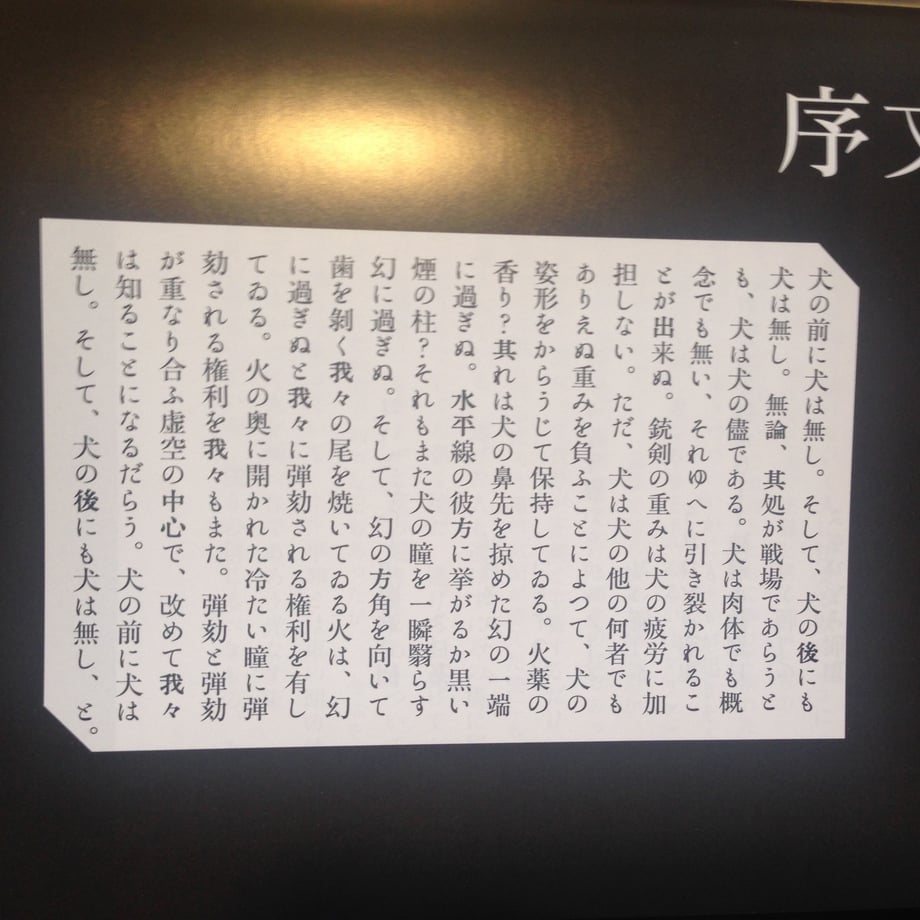 序文
犬の前に犬は無し。そして、犬の後にも
犬は無し。無論、其処が戦場であらうと
も、犬は犬の儘である。犬は肉体でも概
念でも無い、それゆへに引き裂かれるこ
とが出来ぬ。銃剣の重みは犬の疲労に加
担しない。ただ、犬は犬の他の何者でも
ありえぬ重みを負ふことによつて、犬の
姿形をからうじて保持してゐる。火薬の
香り?其れは犬の鼻先を掠めた幻の一端
に過ぎぬ。水平線の彼方に挙がるか黒い
煙の柱?それもまた犬の瞳を一瞬翳らす
幻に過ぎぬ。そして、幻の方角を向いて
歯を剝く我々の尾を焼いてゐる火は、幻
に過ぎぬと我々に弾劾される権利を有し
てゐる。火の奥に開かれた冷たい瞳に弾
劾される権利を我々もまた。弾劾と弾劾
が重なり合ふ虚空の中心で、改めて我々
は知ることになるだらう。犬の前に犬は
無し。そして、犬の後にも犬は無し、と。